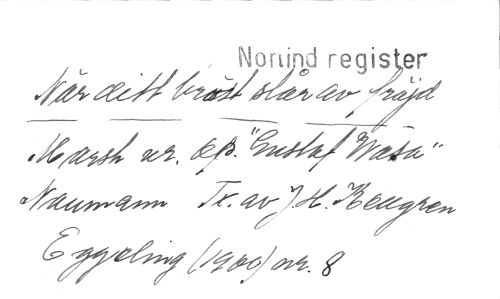 Nomind register
När ditt bröst slår av fröjd
Marsh ur. Op. "Gustaf Wasa"
Naumann Tx. av J. H. Kellgren
Eggeling (1900) nr. 8